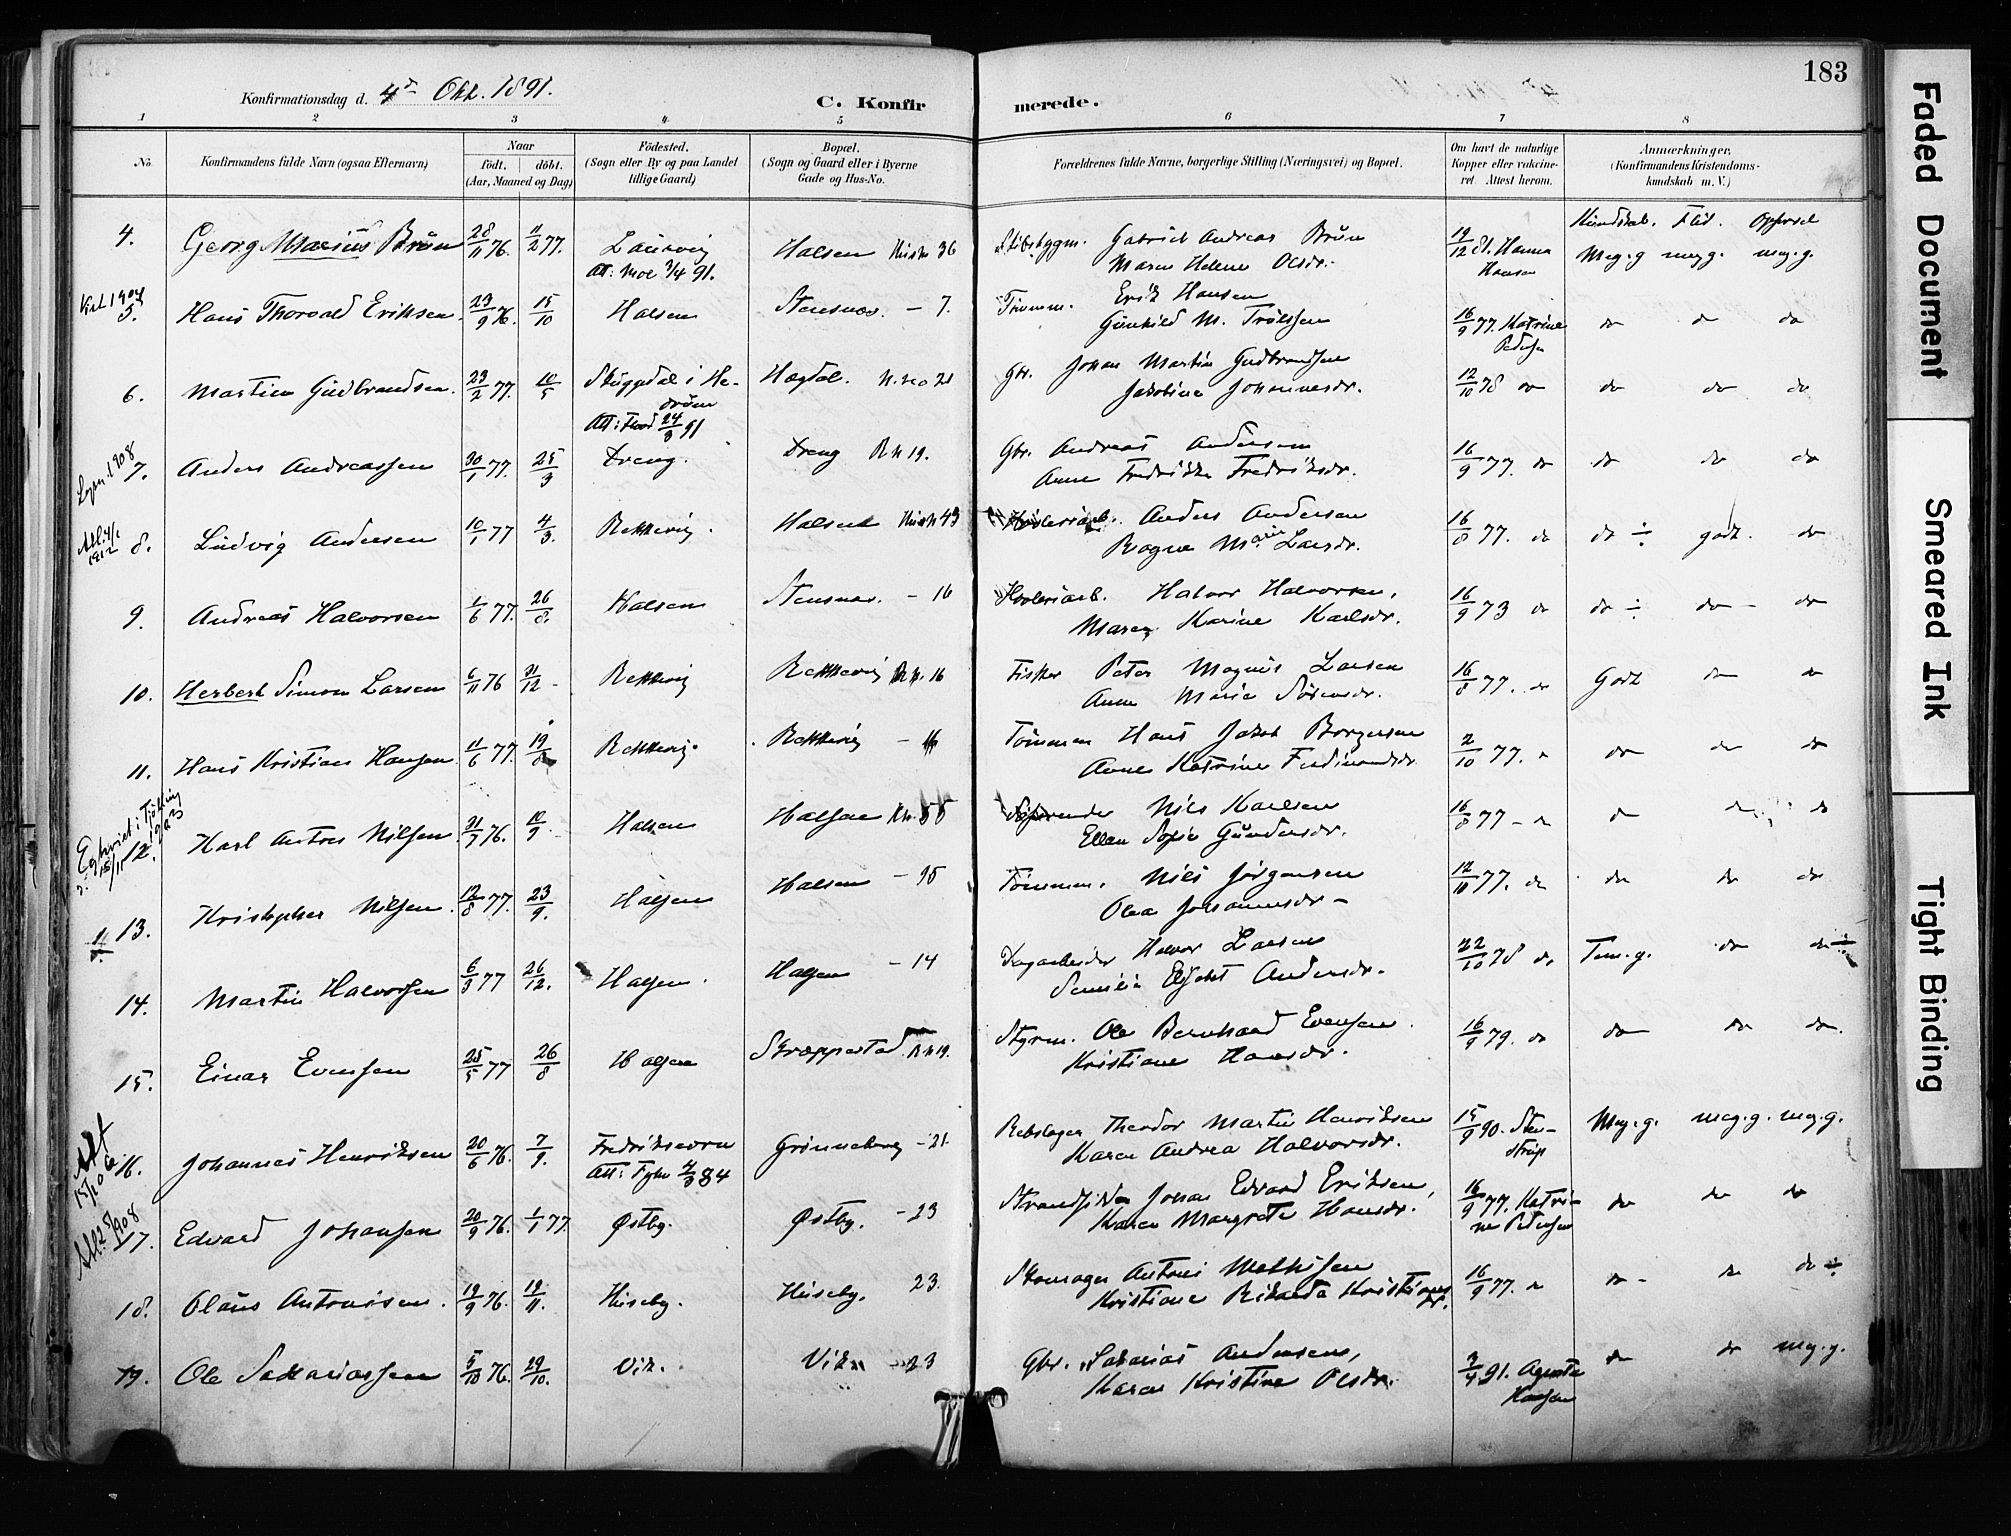 183
Konfirmationsdag d. 4de Okt. 1891.
C. Konfirmerede.
1 2 3 4 5 6 7 8
No. Konfirmandens fulde Navn (ogsaa Efternavn) Naar født. døbt. (Aar, Maaned og Dag) Fødested. (Sogn eller By og paa Landet tillige Gaard) Bopæl. (Sogn og Gaard eller i Byerne Gade og Hus-No. Forældrenes fulde Navne, borgerlige Stilling (Næringsvei) og Bopæl. Om havt de naturlige Kopper eller vakcineret. Attest herom. Anmærkninger, (Konfirmandens Kristendomskundskab m. V.)
Kundskab. Flid. Opførsel
4. Georg Marius Brün 28/11 76. 11/2 77. Laurvig Halsen 36 Skibsbygm. Gabriel Andreas Brün 19/12 Hanna Hansen Meg. g meg g. meg. g.
Att: Moe 3/4 91. Maren Helene Olsdr.
5. Hans Thorvald Eriksen 23/9 76. 15/10 Halsen Stensnæs. - 7. Tømm. Erik Hansen 16/9 77. Katrine Pedersen do do do
Gunhild M. Trulssen
6. Martin Gudbrandsen. 23/2 77. 10/5 i Hedrum Hægdal. 21 Gbr. Johan Martin Gudbrandsen 12/10 78 do do do do
Att: 24/3 91 Jakobine Johannesdr.
7. Anders Andreassen 30/1 77. 25/3 Dreng. Dreng 19. Gbr. Andreas Andersen 16/9 77. do do do do
Anne Fredrikke Fredriksdr.
8. Ludvig Andersen 10/1 77 4/3. Rekkevig. Halsen 43 Anders Andersen 16/8 77. do do ÷ godt. do
Ragne Marie Larsdr.
9. Andreas Halvorsen 1/6 77. 26/8. Halsen Stensnæs. - 16 Halvor Halvorsen, 16/9 73 do do ÷ do - do
Maren Karine Karlsdr.
10. Herbert Simon Larsen 6/11 76 31/12 - Rekkevig Rekkevig 16 Fisker Peter Magnus Larsen 16/8 77. do Godt do do
Anne Marie Sørensdr.
11. Hans Kristian Hansen 11/6 77. 19/8 Rekkevig. Rekkevig - 16 Tømmerm Hans Jakob Borgersen 2/10 77. do do do
Anne Katrine Ferdinandsdr.
12. Karl Anton Nilsen. 31/7 76. 10/9 Halsen Halsen 55 Nils Karlsen 16/8 77 - do do do
Ellen Sofie Gundersdr.
13. Kristopher Nilsen. 12/8 77. 23/9. Halsen Halsen - 95 Tømmerm. Nils Jørgensen 12/11 77. do do do do
Olea Johannesdr -
14. Martin Halvorsen 6/3 77 26/12. Halsen. Halsen - 14 Dagarbeider Halvor Larsen 22/10 78 do Tem. g. do do ÷
Andersdr.
15. Einar Evensen 25/5 77 26/8 Halsen Skreppestad. 19. Styrm. Ole Bernhard Evensen. 16/9 79. do do do do.
Kristiane Hansdr.
16. Johannes Henriksen 20/6 76. 7/9. Fredriksværn Grønneberg - 21 Rebslager Theodor Martin Henriksen 15/9 90. Meg. g. meg. g. meg. g.
Karen Andrea Halvorsdr.
17. Edvard Johansen 20/9 76. 1/1 77. Østby. Østby. - 23 Strandsidder Johan Edvard Eriksen, 16/9 77. Katrine Pedersen do do do
Karen Margrete Hansdr.
18. Olaus Antonisen. 19/9 76. 19/11. Huseby. Huseby. 23. Skomager Antoni Mathisen 16/9 77. do - do do ÷
Kristiane Rikarda Kristiansdr.
19. Ole Sakariassen 5/10 76. 29/10. Vik. Vik - 23 Gbr. Sakarias Andersen, 3/4 91. Agenta Hansen do do meg. g.
Karen Kristine Olsdr.
Faded Document
Smeared Ink
Tight Binding